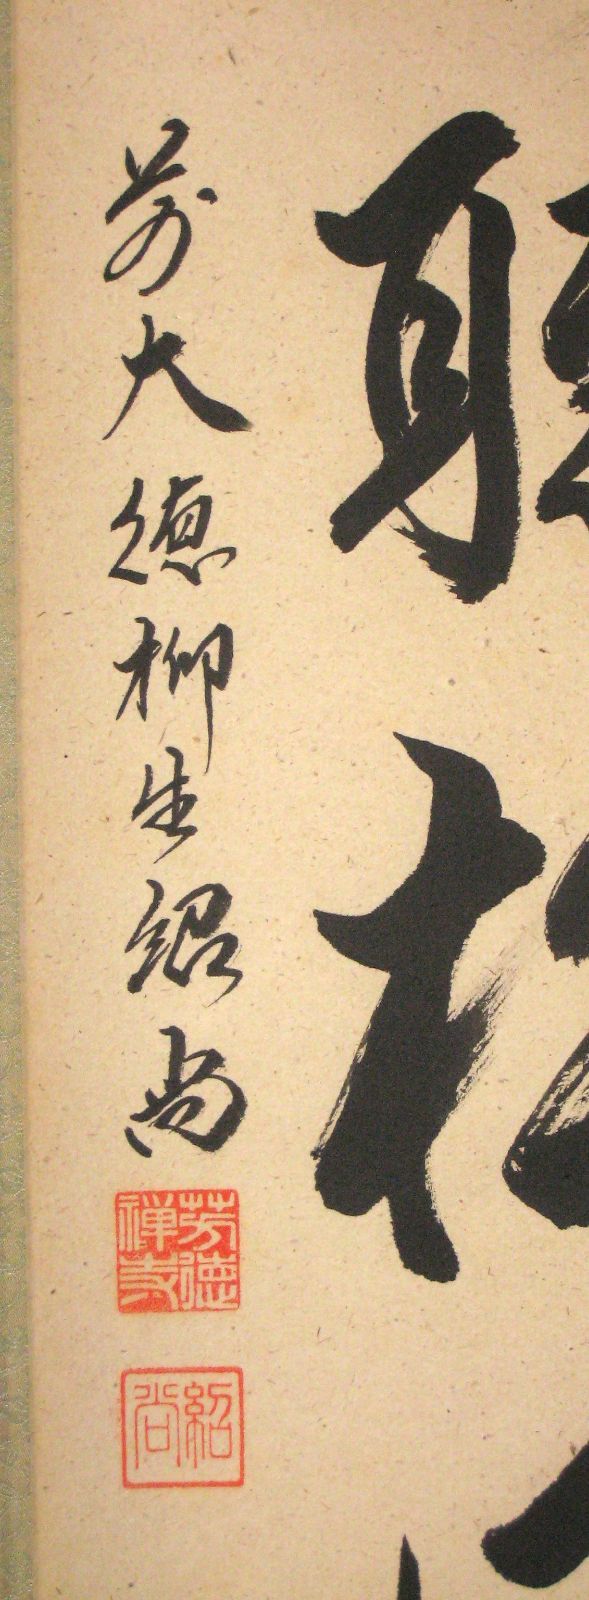 聴松
前大徳柳生紹尚
芳徳禅寺
紹尚